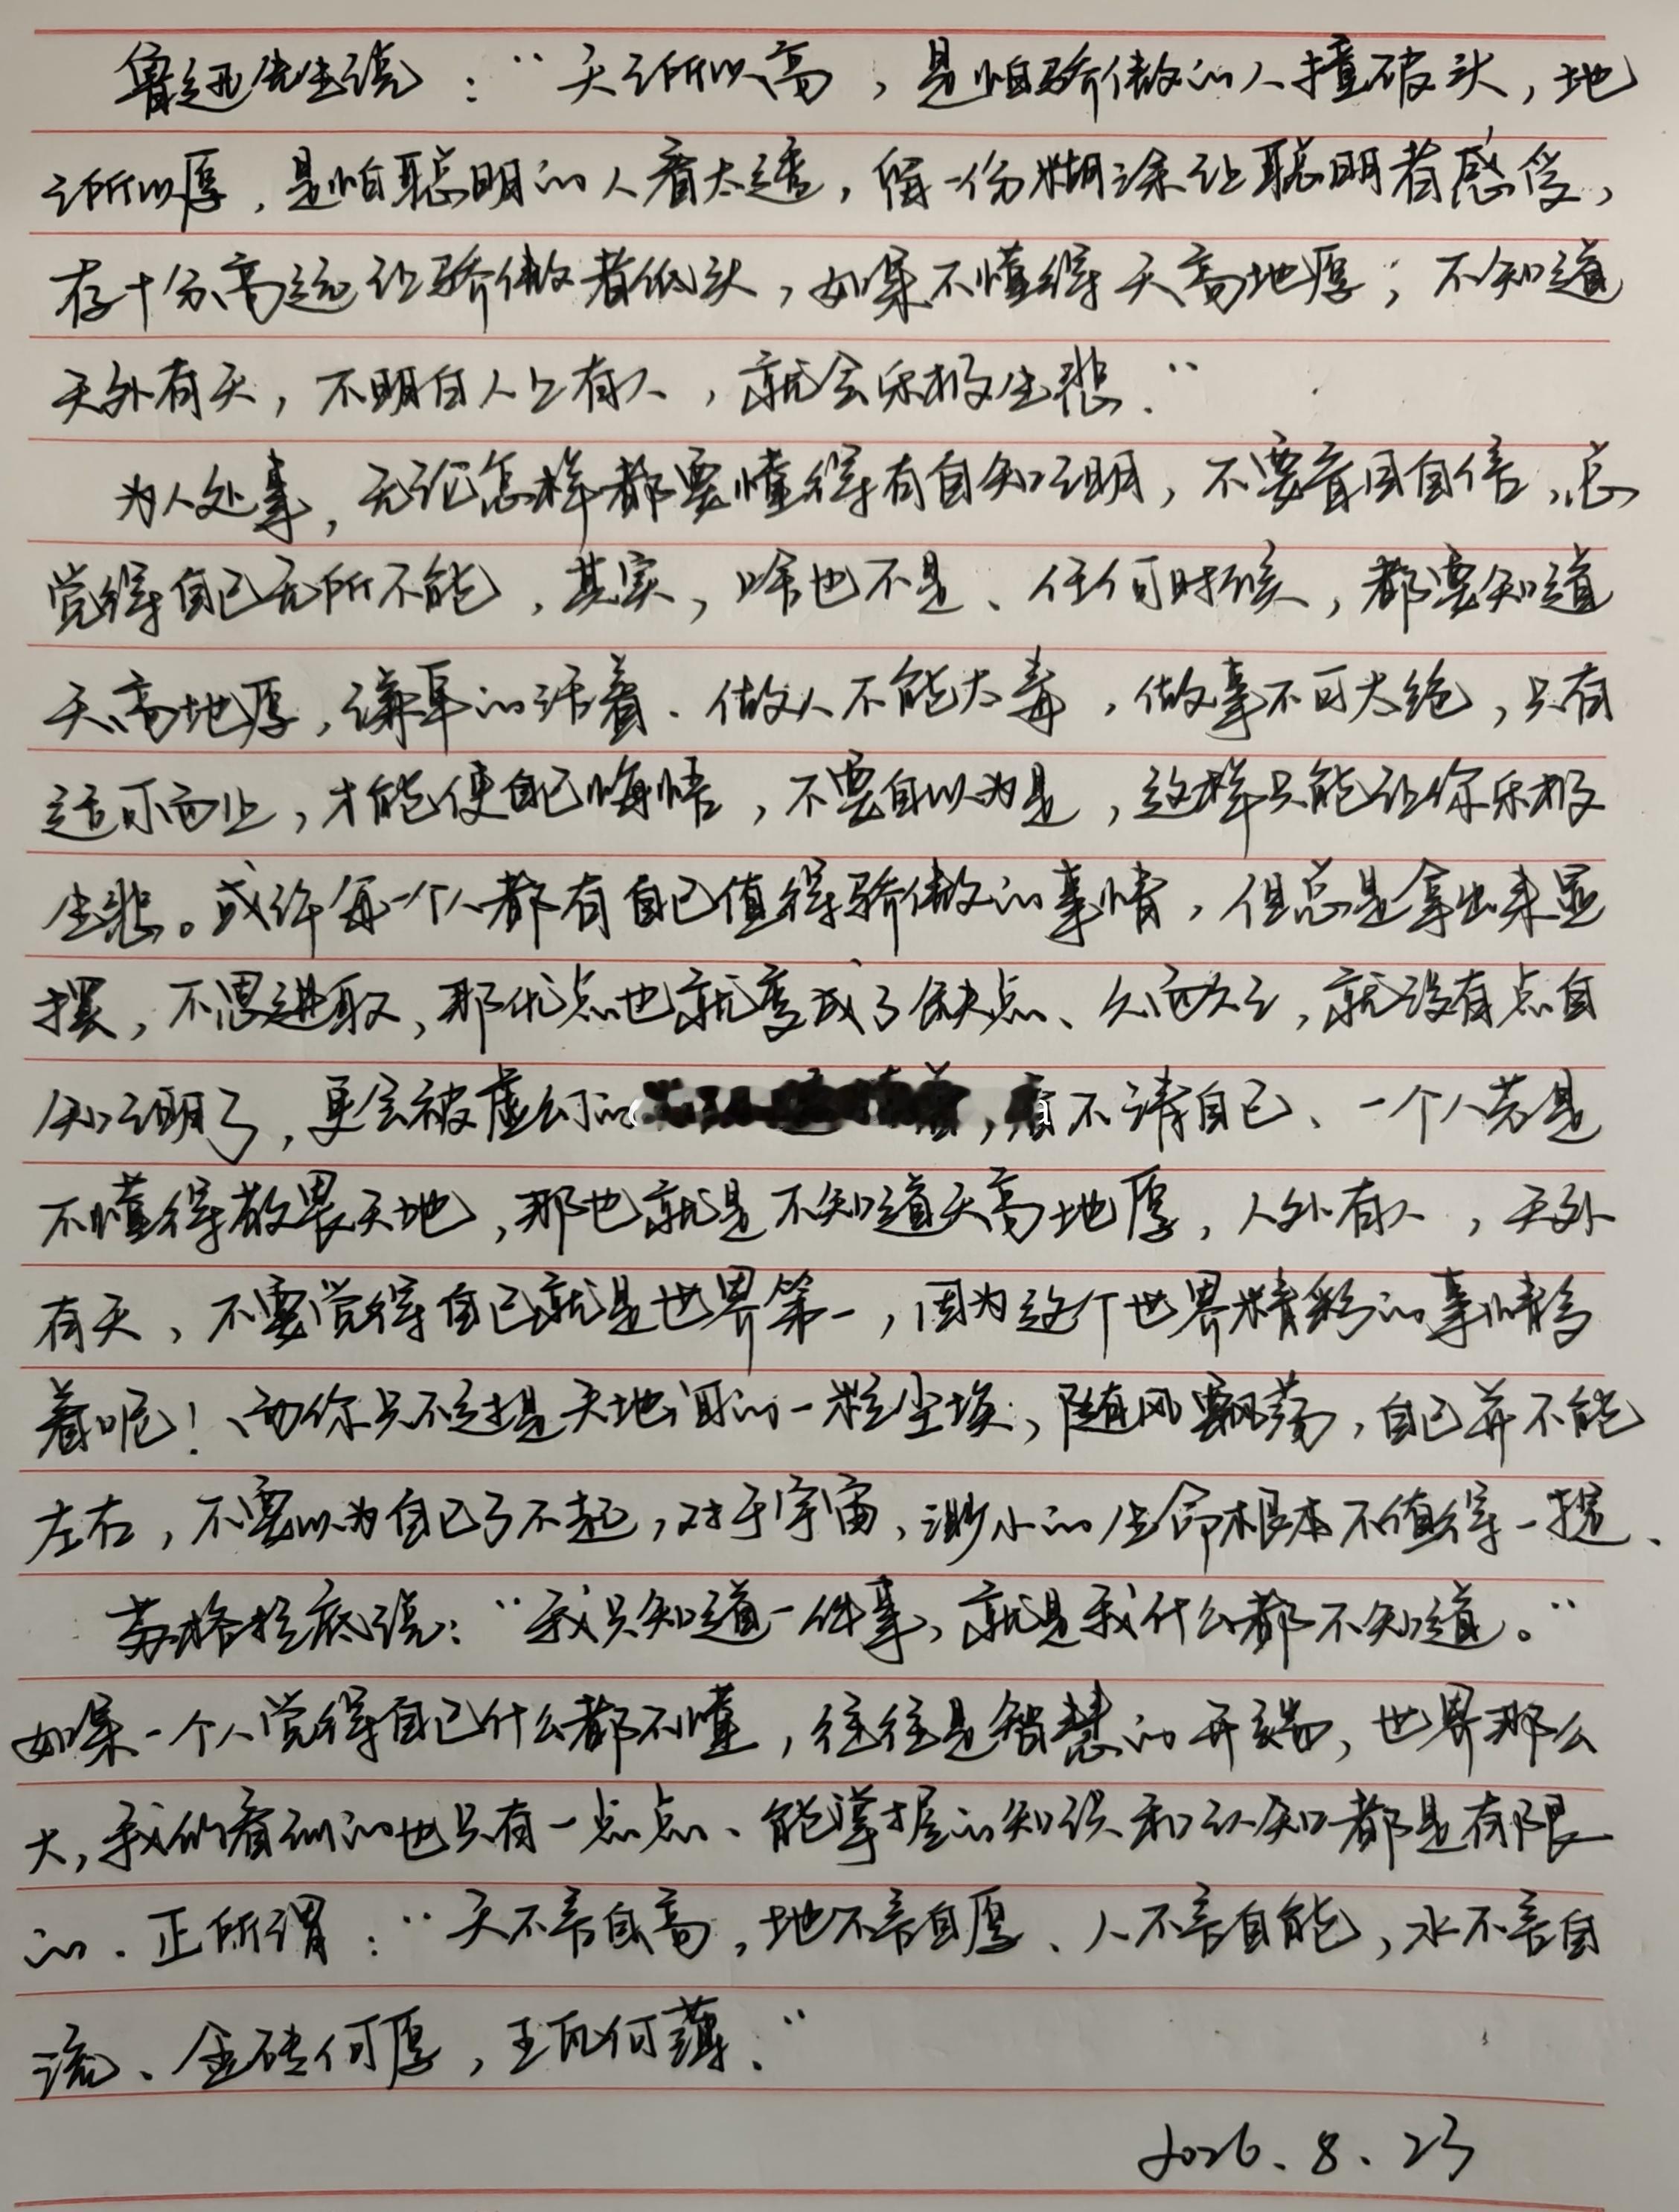 鲁迅先生说："天之所以高，是怕骄傲的人撞破头，地
之所以厚，是怕聪明的人看太透，留一份糊涂让聪明者感受，
存十分高远让骄傲者低头，如果不懂得天高地厚；不知道
天外有天，不明白人上有人，就会乐极生悲."
为人处事，无论怎样都要懂得有自知之明，不要盲目自信，总
觉得自己无所不能，其实，啥也不是、任何时候，都要知道
天高地厚，谦卑的活着.做人不能太毒，做事不可太绝，只有
适可而止，才能使自己悔悟，不要自以为是，这样只能让你乐极
生悲。或许每一个人都有自己值得骄傲的事情，但总是拿出来显
摆，不思进取，那优点也就变成了缺点、久而久之，就没有点自
知之明了，更会被虚幻的，看不清自己、一个人若是
不懂得敬畏天地，那也就是不知道天高地厚，人外有人，天外
有天，不要觉得自己就是世界第一，因为这个世界精彩的事情多
着呢！而你只不过是天地间的一粒尘埃，随风飘荡，自己并不能
左右，不要以为自己了不起，对于宇宙，渺小的生命根本不值得一提、
苏格拉底说："我只知道一件事，就是我什么都不知道。"
如果一个人觉得自己什么都不懂，往往是智慧的开端，世界那么
大，我们看到的也只有一点点、能掌握的知识和认知都是有限
的.正所谓："天不言自高，地不言自厚、人不言自能，水不言自
流、金砖何厚，玉瓦何薄."
2026.8.23